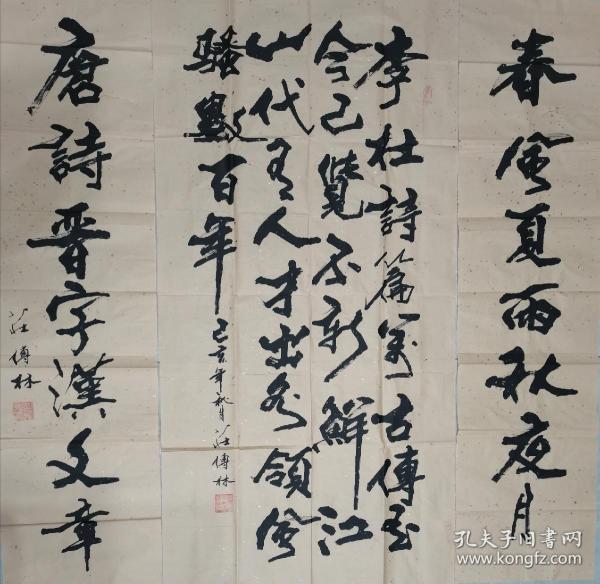 春風夏雨秋夜月
李杜詩篇萬古傳至
今已覺不新鮮江
山代有人才出各領風
騷數百年
己亥年秋月 莊傳林
唐詩晋字漢文章
莊傳林
孔夫子旧书网
kongfz.com